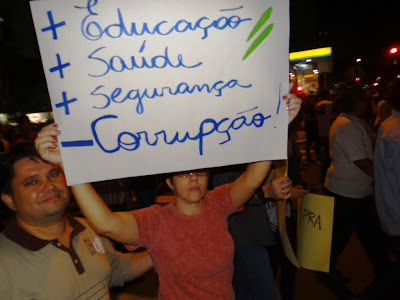 + Educação
+ Saúde
+ Segurança
- Corrupção!
PRA